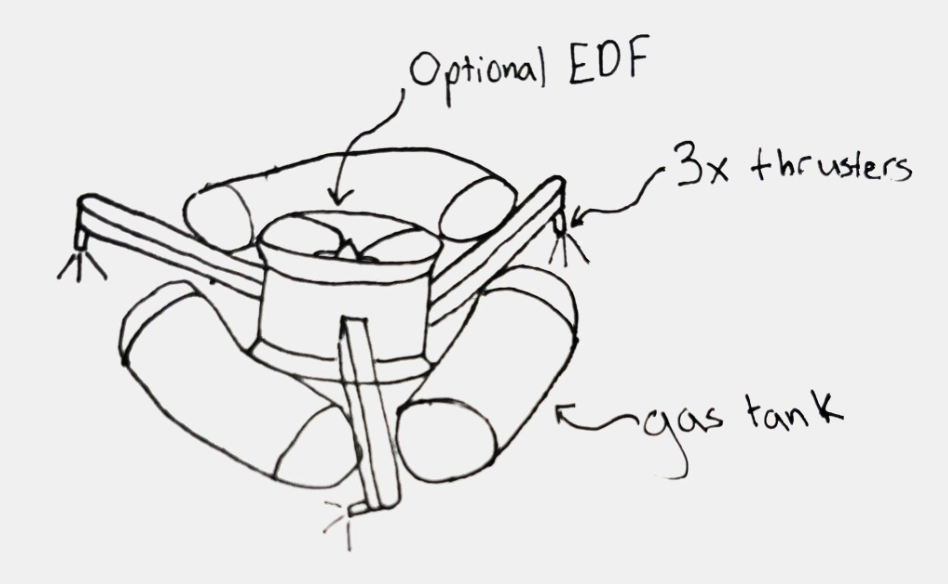 Optional EDF
3x thrusters
gas tank